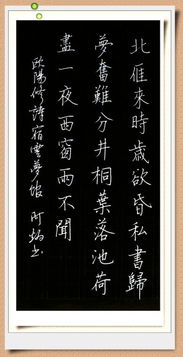 北雁來時歲欲昏私書歸
夢杳難分井桐葉落池荷
盡一夜西窗雨不聞
欧陽修詩宿雲夢館 阿炳书